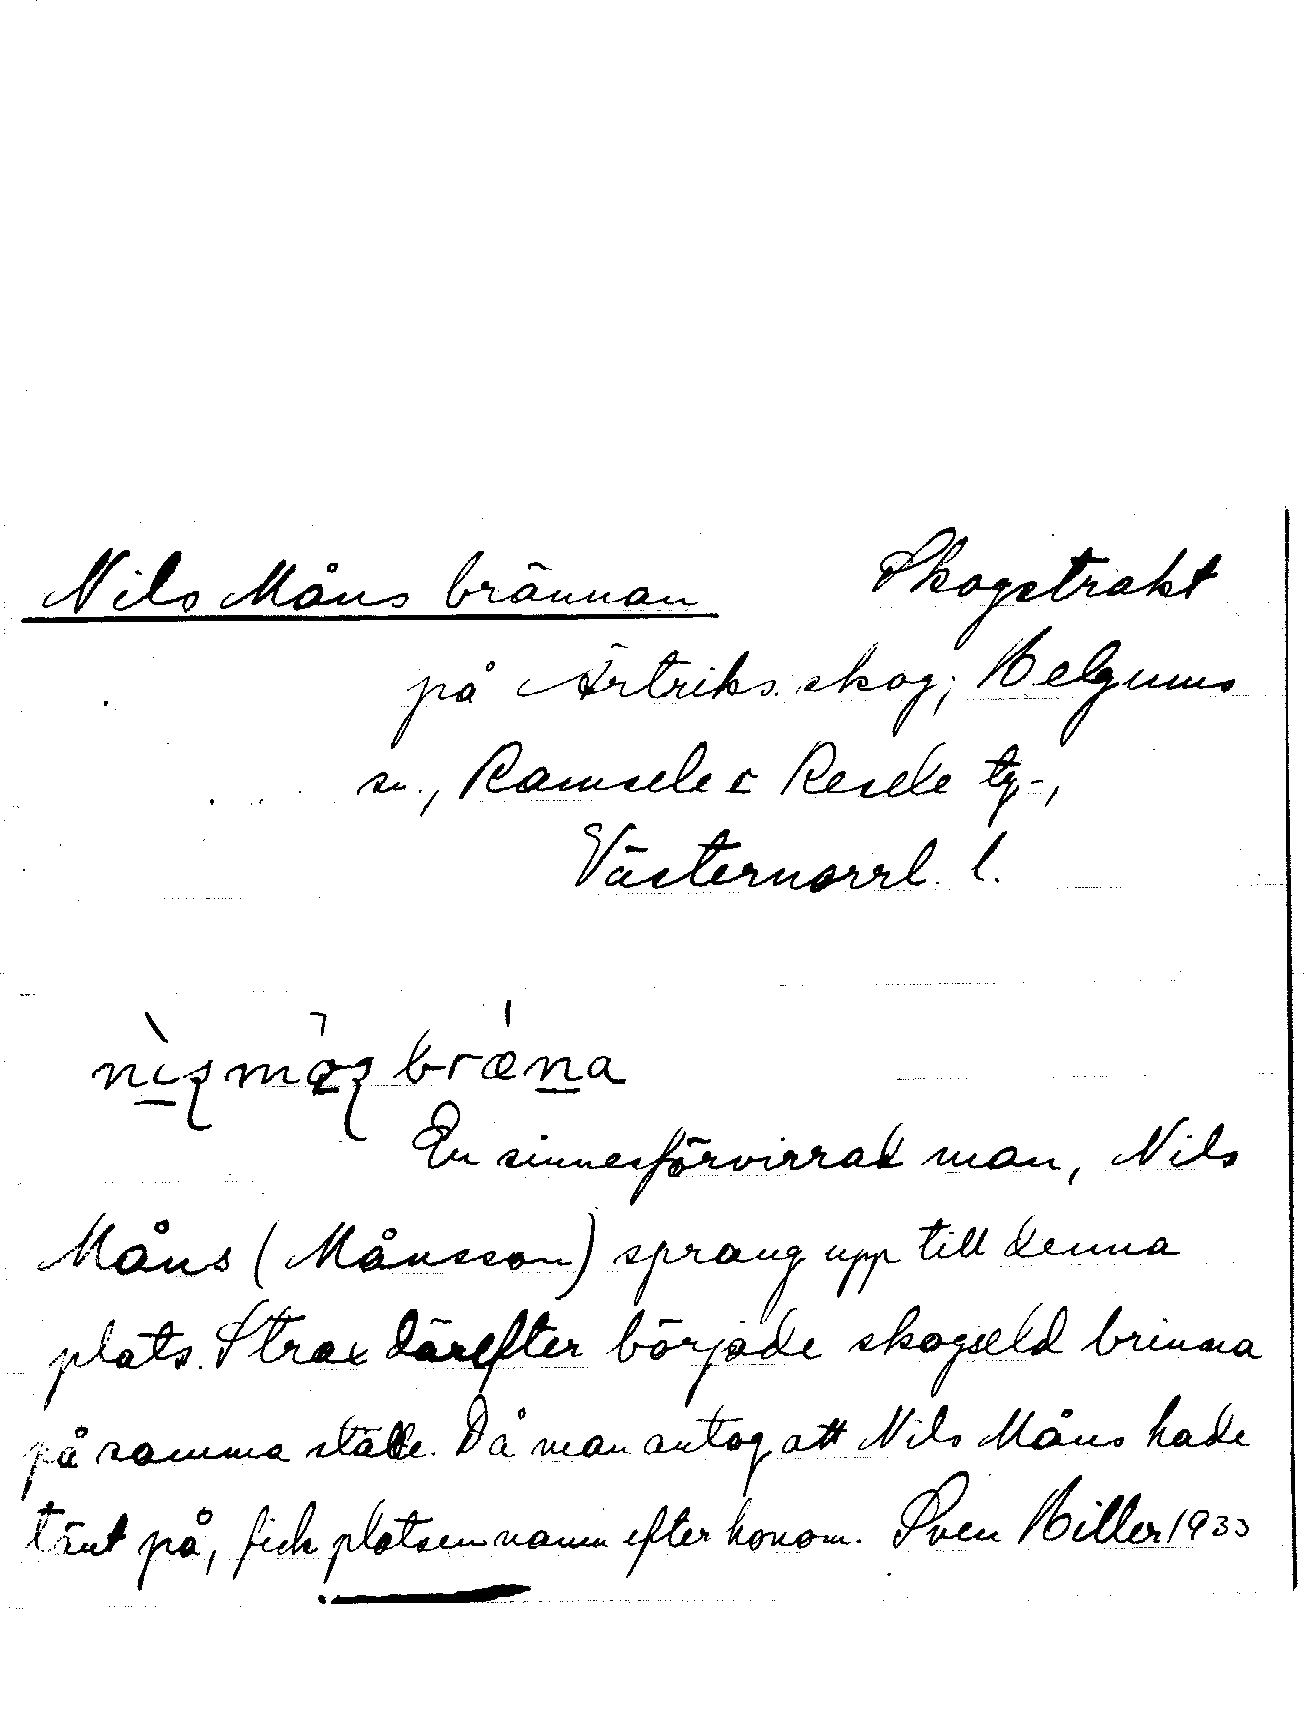 Nils Måns brännan Skogstrakt
på Ärtriks skog, Helgums
sn., Ramsele o Resele tg-,
Västernorrl. l.
En sinnesförvirrad man, Nils
Måns (Månsson) sprang upp till denna
plats. Strax därefter började skogseld brinna
på samma ställe. Då man antog att Nils Måns hade
tänt på, fick platsen namn efter honom. Sven Hiller 1933